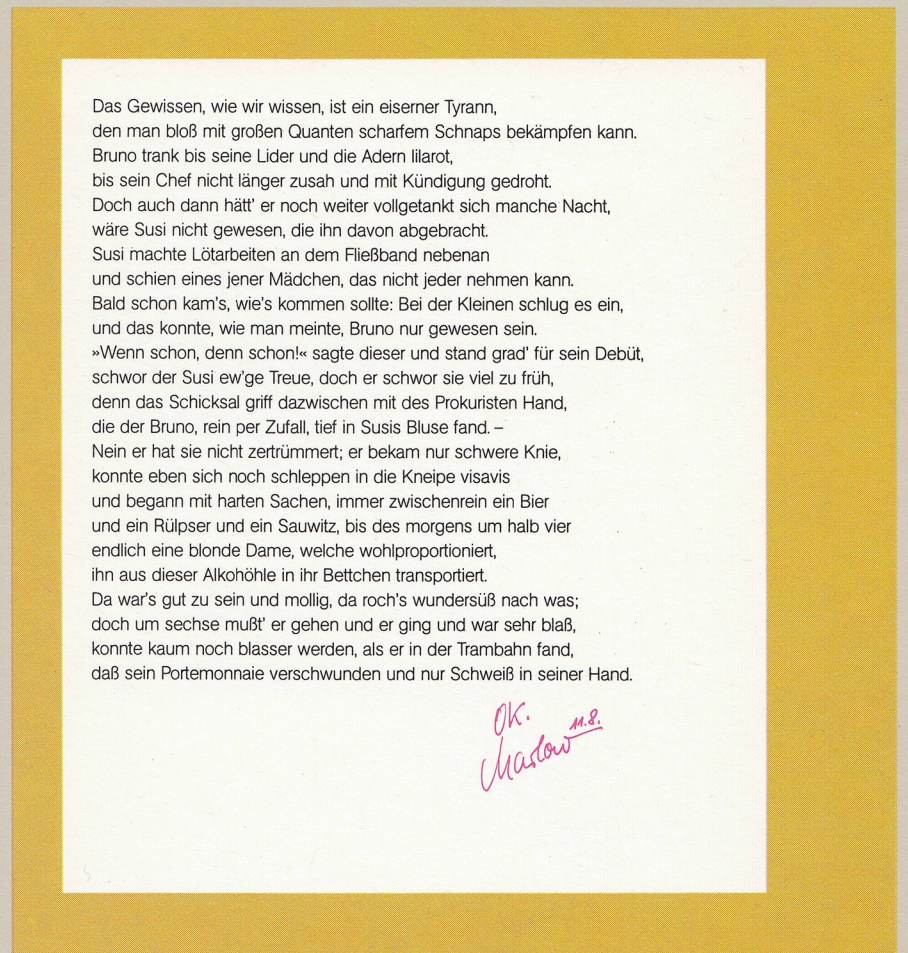 Das Gewissen, wie wir wissen, ist ein eiserner Tyrann,
den man bloß mit großen Quanten scharfem Schnaps bekämpfen kann.
Bruno trank bis seine Lider und die Adern lilarot,
bis sein Chef nicht länger zusah und mit Kündigung gedroht.
Doch auch dann hätt' er noch weiter vollgetankt sich manche Nacht,
wäre Susi nicht gewesen, die ihn davon abgebracht.
Susi machte Lötarbeiten an dem Fließband nebenan
und schien eines jener Mädchen, das nicht jeder nehmen kann.
Bald schon kam's, wie's kommen sollte: Bei der Kleinen schlug es ein,
und das konnte, wie man meinte, Bruno nur gewesen sein.
»Wenn schon, denn schon!« sagte dieser und stand grad' für sein Debüt,
schwor der Susi ew'ge Treue, doch er schwor sie viel zu früh,
denn das Schicksal griff dazwischen mit des Prokuristen Hand,
die der Bruno, rein per Zufall, tief in Susis Bluse fand. –
Nein er hat sie nicht zertrümmert; er bekam nur schwere Knie,
konnte eben sich noch schleppen in die Kneipe visavis
und begann mit harten Sachen, immer zwischenrein ein Bier
und ein Rülpser und ein Sauwitz, bis des morgens um halb vier
endlich eine blonde Dame, welche wohlproportioniert,
ihn aus dieser Alkohöhle in ihr Bettchen transportiert.
Da war's gut zu sein und mollig, da roch's wundersüß nach was;
doch um sechse mußt' er gehen und er ging und war sehr blaß,
konnte kaum noch blasser werden, als er in der Trambahn fand,
daß sein Portemonnaie verschwunden und nur Schweiß in seiner Hand.
OK.
11.8.
Marlow